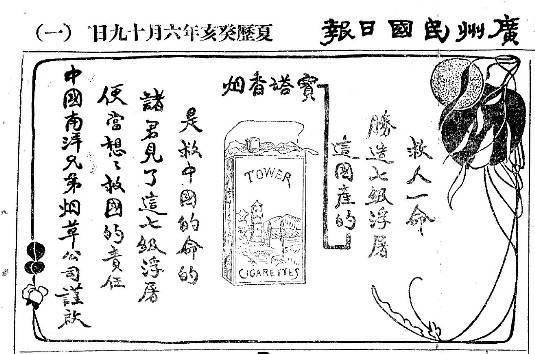 廣州民國日報
夏歷癸亥年六月十九日
(一)
救人一命
勝造七級浮屠
這國產的
寶塔香烟
TOWER
CIGARETTES
是救中國的命的
諸君見了這七級浮屠
便當想々救國的責任
中國南洋兄弟烟草公司謹啟